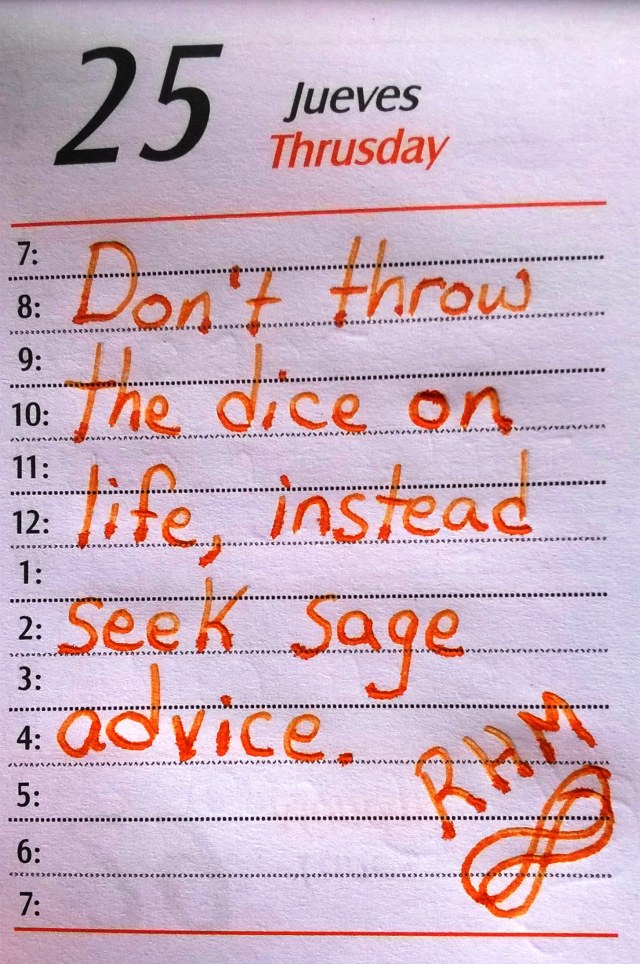 25 Jueves
Thrusday
7:
8: Don't throw
9:
10: the dice on
11:
12: life, instead
1:
2: seek sage
3:
4: advice.
RHM
5:
6:
7: